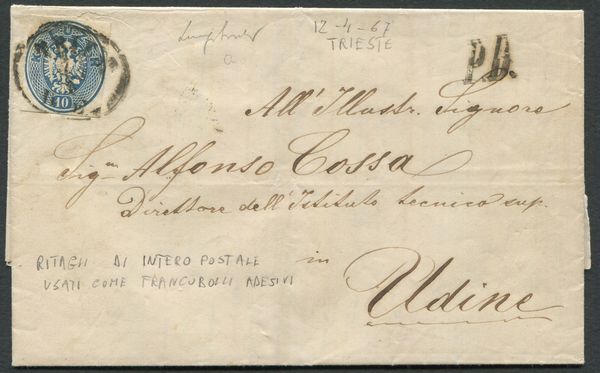 12-4-67
TRIESTE
P.D.
10
All' Illustr. Signore
Sig.re Alfonso Cossa
Direttore dell'Istituto tecnico sup.
in
Udine
RITAGLI DI INTERO POSTALE
USATI COME FRANCOBOLLI ADESIVI